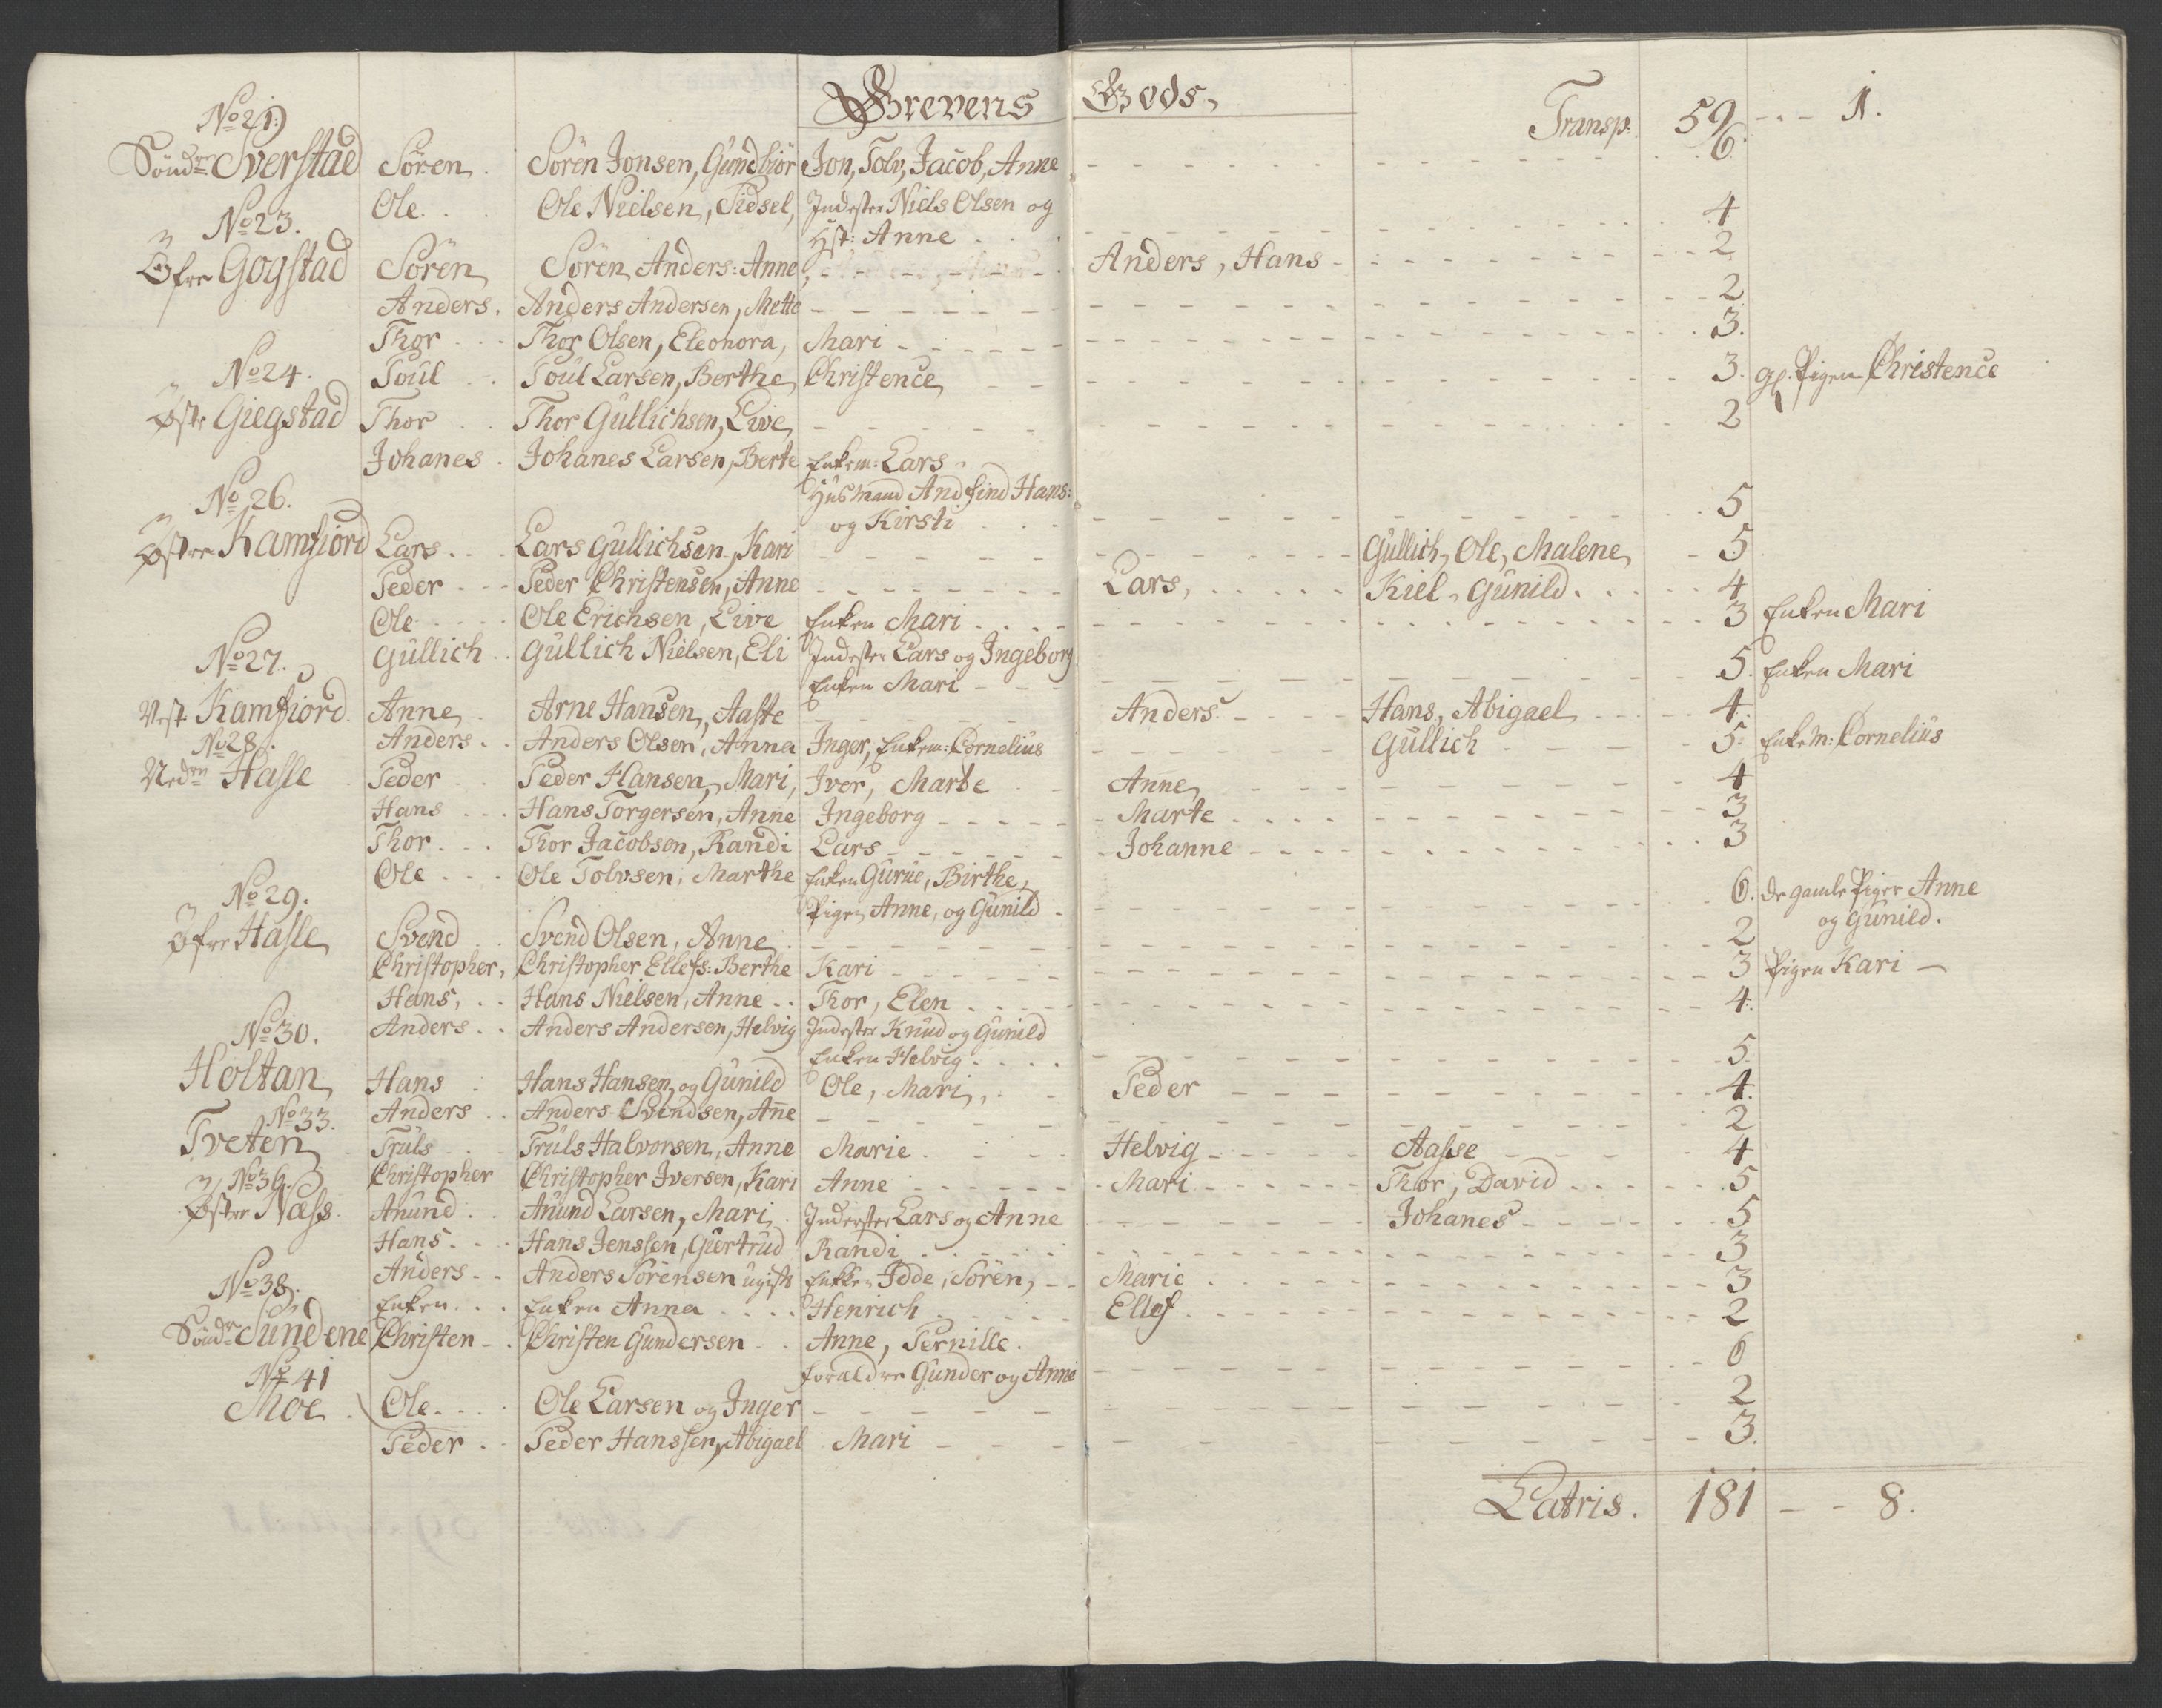 Grevens Gods,
Transp: 59 - - - 1.
No 21)
Söndre Sverstad Sören Sören Jonsen, Gundbiör Jon, Tolv, Jacob, Anne 6.
Ole Ole Nielsen, Sidsel, Inderster Niels Olsen og
Hst: Anne 4
No 23.
Öfre Gogstad Sören Sören Anders: Anne Anders, Hans 2
Anders. Anders Andersen, Mette 2
Thor Thor Olsen, Eleonora, Mari 3.
No 24.
Poul Poul Larsen, Berthe Christence 3. gl. Pigen Christence
Østr Giegstad Thor Thor Gullichsen, Live 2
Johanes Johanes Larsen, Berte Enkem: Lars
Husmand Andfind Hans:
og Kirsti 5
No 26.
Østre Kamfiord Lars Lars Gullichsen, Kari Gullich, Ole, Malene 5
Peder Peder Christensen, Anne Lars, Kiel, Gunild 4
Ole Ole Erichsen, Live Enken Mari 3 Enken Mari
Gullich Gullich Nielsen, Eli Indester Lars og Ingeborg
Enken Mari 5. Enken Mari
No 27.
Vest Kamfiord Anne Arne Hansen, Aaste Anders Hans, Abigael 4.
Anders Anders Olsen, Anna Inger, Enkem: Cornelius Gullich 5. Enkem: Cornelius
No 28.
Nedre Hasle Peder Peder Hansen, Mari, Iver, Marte Anne 4
Hans Hans Torgersen, Anne Ingeborg Marte 3
Thor Thor Jacobsen, Randi Lars Johanne 3
Ole Ole Tolvsen, Marthe Enken Gurue, Birthe,
Pigen Anne, og Gunild 6. de gamle Piger Anne
og Gunild.
No 29.
Öfre Hasle Svend Svend Olsen, Anne 2
Christopher, Christopher Ellefs: Berthe Kari 3 Pigen Kari
Hans, Hans Nielsen, Anne Thor, Elen 4.
Anders Anders Andersen, Helvig Indester Knud og Gunild
Enken Helvig 5.
No 30.
Holtan Hans Hans Hansen og Gunild Ole, Mari, Peder 4.
Anders Anders Svendsen, Ane 2
No 33.
Tveten Truls Truls Halvorsen, Anne Marie Helvig Aasse 4
Christopher Christopher Iversen, Kari Anne Mari Thor, David 5
No 36.
Østre Næss Anund Anund Larsen, Mari Inderster Lars og Anne Johanes 5
Hans Hans Jenssen, Giertrud Randi 3
Anders Anders Sörensen ugift Enken Idde, Sören, Marie 3
Enken Enken Anna Henrich Ellef 2
No 38.
Söndr Sundene Christen Christen Gundersen Anne, Pernille.
foraldre Gunder og Anne 6
No 41
Moe Ole Ole Larsen og Inger 2
Peder Peder Hanssen, Abigael Mari 3.
Latris. 181 - - 8.